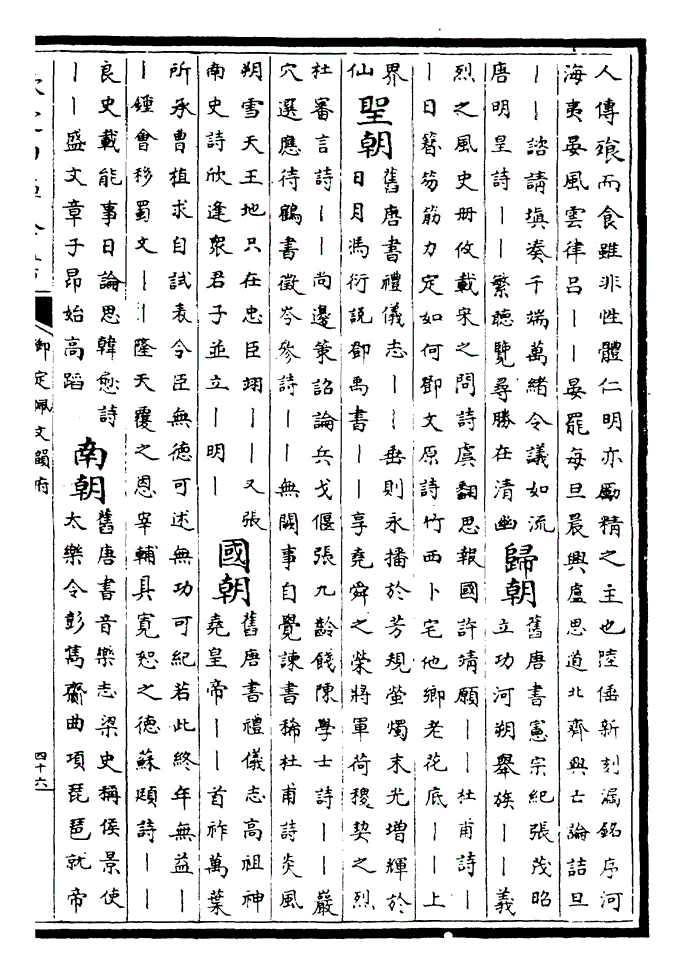 人傳飱而食雖非性體仁明亦勵精之主也陸倕新刻漏銘序河
海夷晏風雲律呂丨丨晏罷每旦晨興盧思道北齊興亡論詰旦
丨丨諮請填湊千端萬緒令議如流
唐明皇詩丨丨繁聽覽尋勝在清幽
歸朝
舊唐書憲宗紀張茂昭
立功河朔舉族丨丨義
烈之風史册攸載宋之問詩虞翻思報國許靖願丨丨杜甫詩丨
丨日簪笏筋力定如何鄧文原詩竹西卜宅他鄉老花底丨丨上
界
仙
聖朝
舊唐書禮儀志丨丨垂則永播於芳規螢燭末光增輝於
日月馮衍說鄧禹書丨丨享堯舜之榮將軍荷稷契之烈
杜審言詩丨丨尚邊策詔諭兵戈偃張九齡餞陳學士詩丨丨嚴
穴選應待鶴書徵岑參詩丨丨無闕事自覺諫書稀杜甫詩炎風
朔雪天王地只在忠臣翊丨丨又張
南史詩欣逢衆君子並立丨明丨
國朝
舊唐書禮儀志高祖神
堯皇帝丨丨首祚萬葉
所承曹植求自試表今臣無德可述無功可紀若此終年無益丨
丨鍾會移蜀文丨丨隆天覆之恩宰輔具寬恕之德蘇頲詩丨丨
良史載能事日論思韓愈詩
丨丨盛文章子昂始高蹈
南朝
舊唐書音樂志梁史稱侯景使
太樂令彭雋齎曲項琵琶就帝
御定佩文韻府
四十六